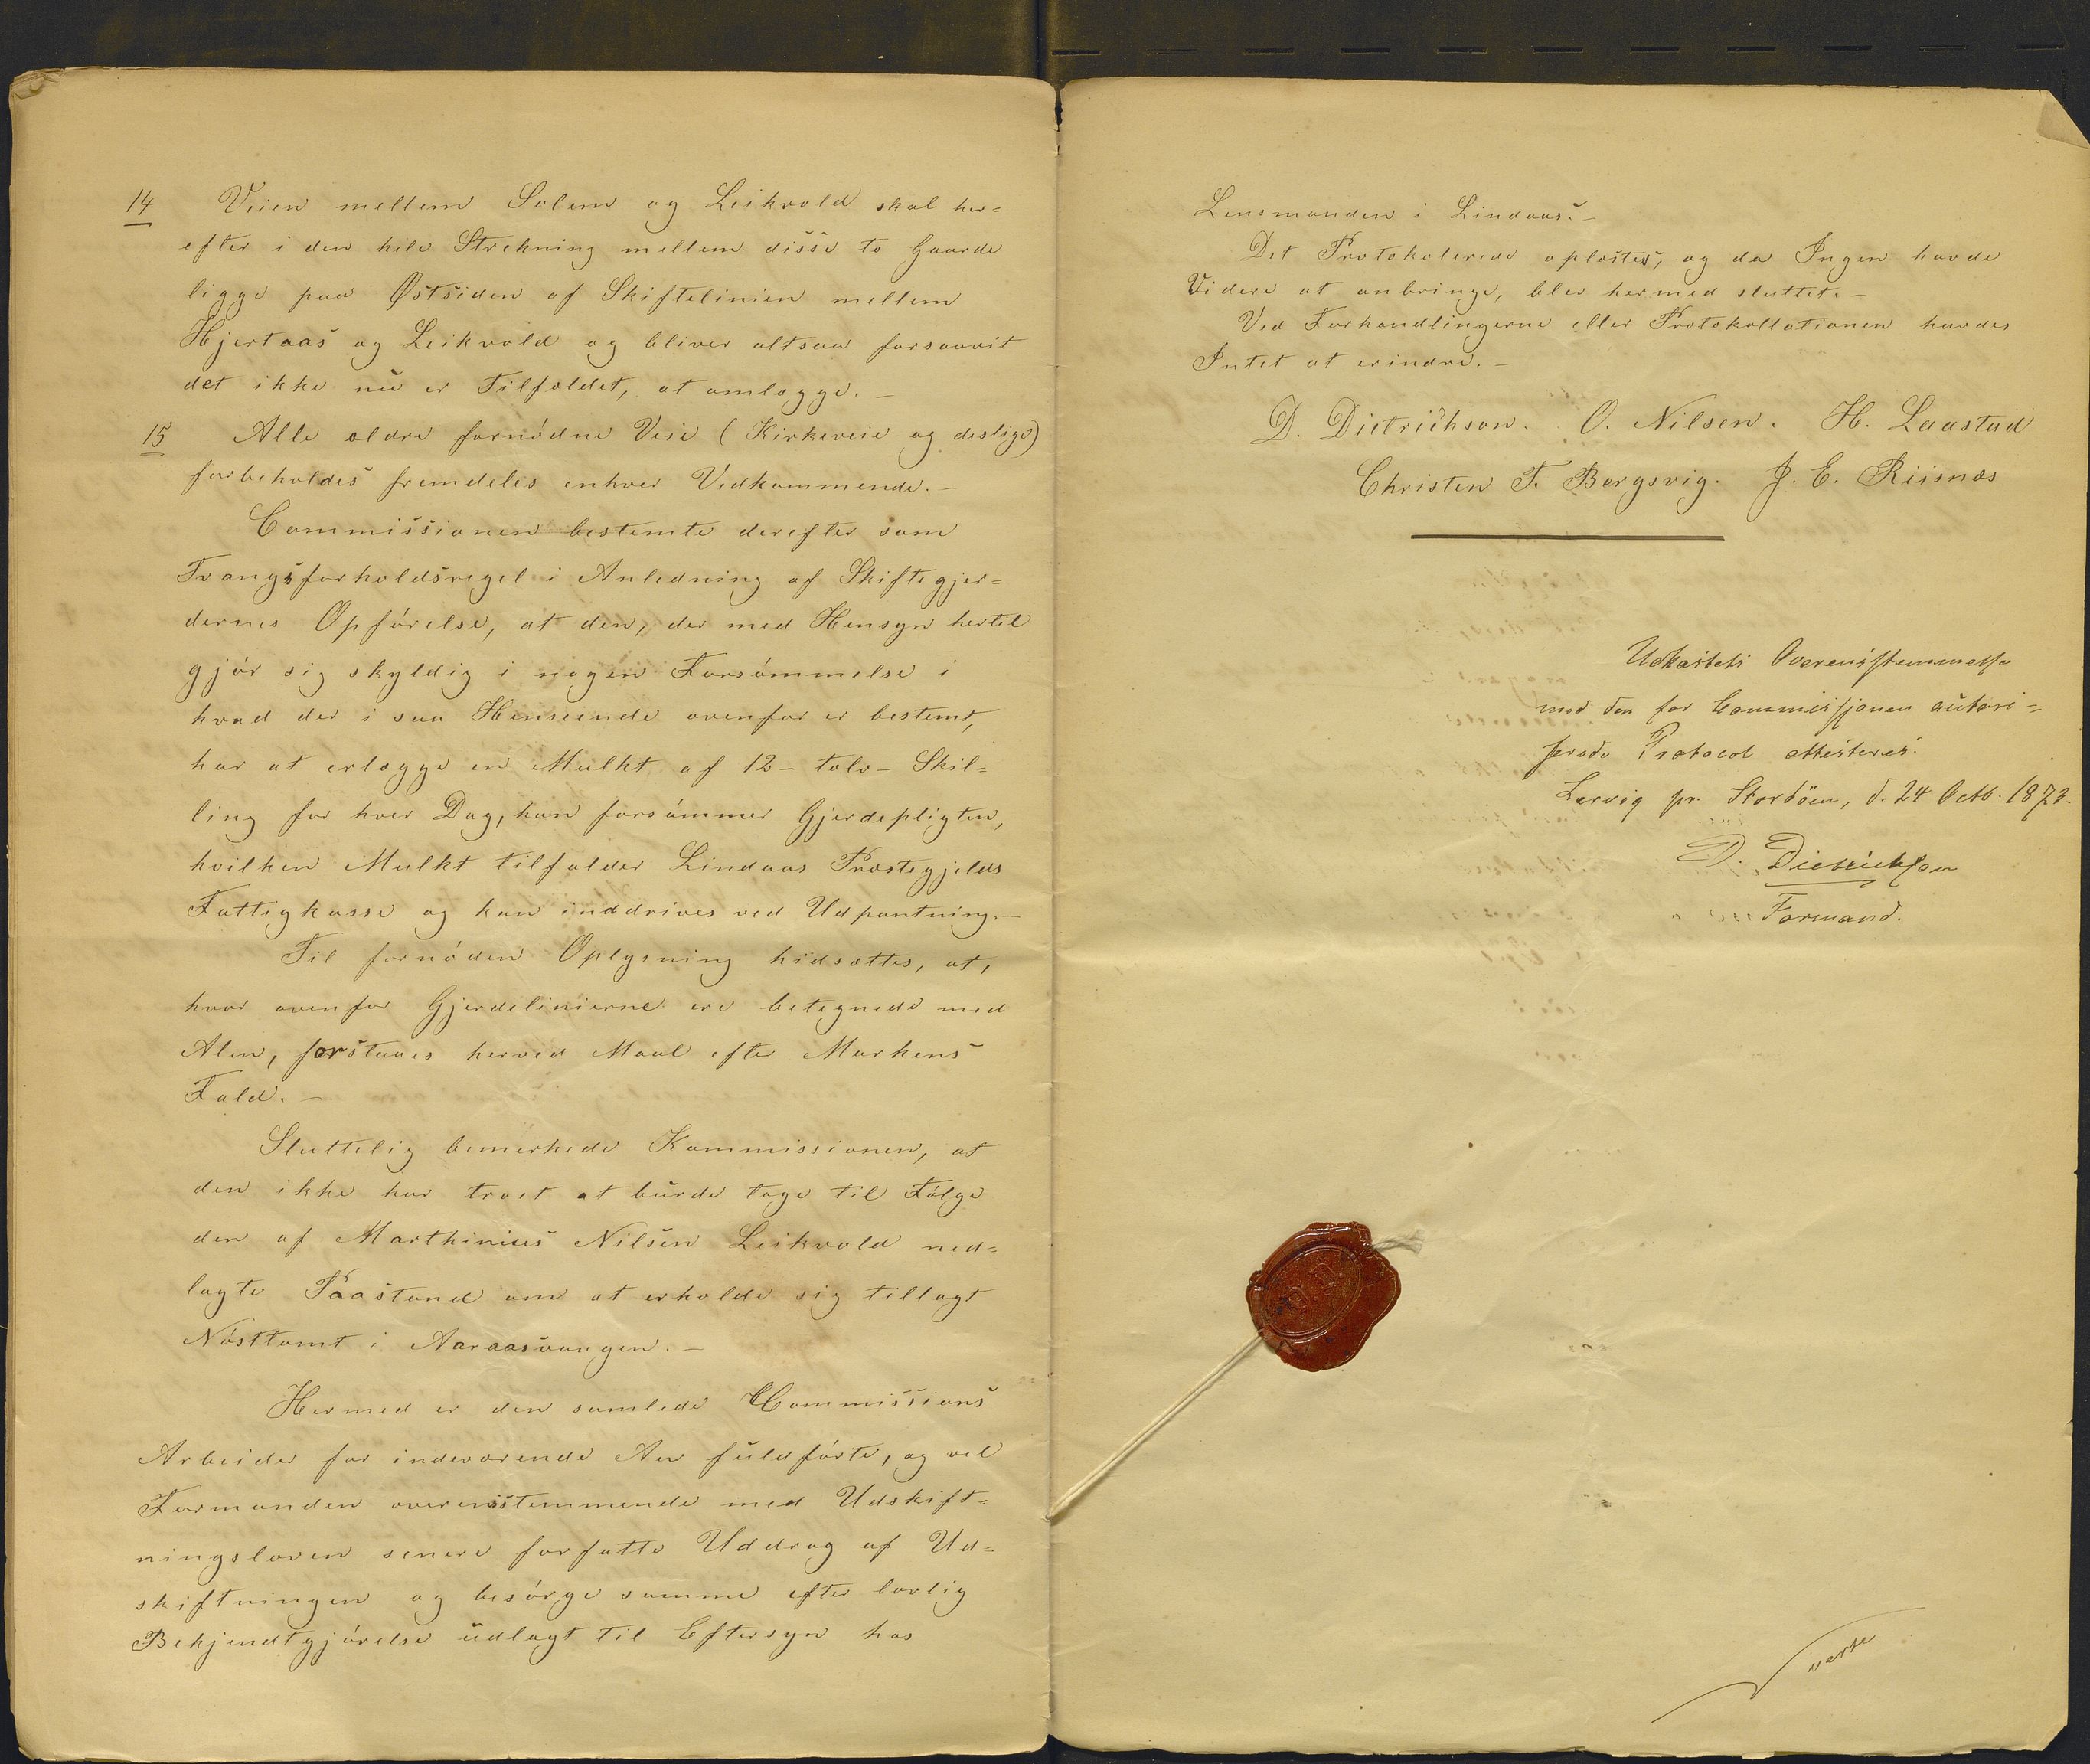 14 Veien mellem Solem og Leikvold skal her=
efter i den hele Strekning mellem disse to Gaarde
ligge paa Østsiden af Skiftelinien mellem
Hjertaas og Leikvold og bliver altsaa forsaavit
det ikke nu er Tilfældet, at omlægge. –
15 Alle ældre fornødne Veie (Kirkeveie og deslige)
forbeholdes fremdeles enhver Vedkommende. –
Commissionen bestemte derefter som
Tvangsforholdsregel i Anledning af Skiftegjer=
dernes Opførelse, at den, der med Hensyn hertil
gjør sig skyldig i nogen Forsømmelse i
hvad der i saa Henseende ovenfor er bestemt,
har at erlægge en Mulkt af 12 – tolv – Skil=
ling for hver Dag, han forsømmer Gjerdepligten,
hvilken Mulkt tilfalder Lindaas Præstegjelds
Fattigkasse og kan inddrives ved Udpantning. –
Til fornøden Oplysning hidsættes, at,
hvor ovenfor Gjerdelinierne ere betegnede med
Alen, forstaaes herved Maal efter Markens
Fald. –
Sluttelig bemerkede Kommissionen, at
den ikke har troet at burde tage til Følge
den af Marthinius Nilsen Leikvold ned=
lagte Paastand om at erholde sig tillagt
Nøsttomt i Aaraasvaagen. –
Hermed er den samlede Commissions
Arbeider for indeværende Aar fuldførte, og vil
Formanden overensstemmende med Udskift=
ningsloven senere forfatte Uddrag af Ud=
skiftningen og besørge samme efter lovlig
Bekjendtgjørelse udlagt til Eftersyn hos
Lensmanden i Lindaas. –
Det Protokolerede oplæstes, og da Ingen havde
Videre at anbringe, blev hermed sluttet. –
Ved Forhandlingerne eller Protokollationen havdes
Intet at erindre. –
D. Dietrichson. O. Nilsen. H. Laastad
Christen T. Borgsvig. J. E. Riisnæs
Udkastets Overensstemmelse
med den for Commissjonen autori=
serede Protocol attesteres.
Lervig pr. Stordöen, d. 24 Octb. 1873.
D. Dietrichson
Formand.
verte